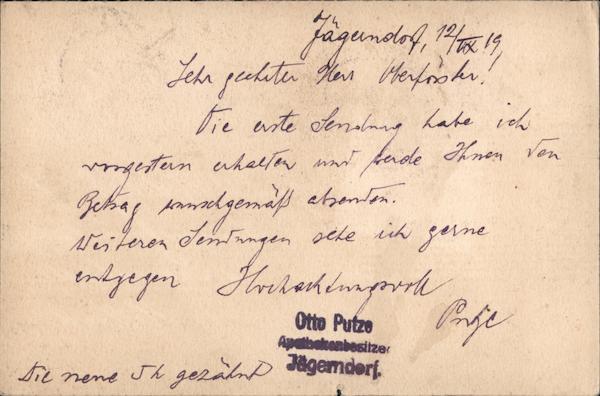 Jägerndorf, 12/IX 19,
Sehr geehrter Herr Oberförster!
Die erste Sendung habe ich
vorgestern erhalten und werde Ihnen den
Betrag wunschgemäß absenden.
Weiteren Sendungen sehe ich gerne
entgegen Hochachtungsvoll
Putze
Otto Putze
Apothekenbesitzer
Jägerndorf.
Die neue 5 h gezähnt